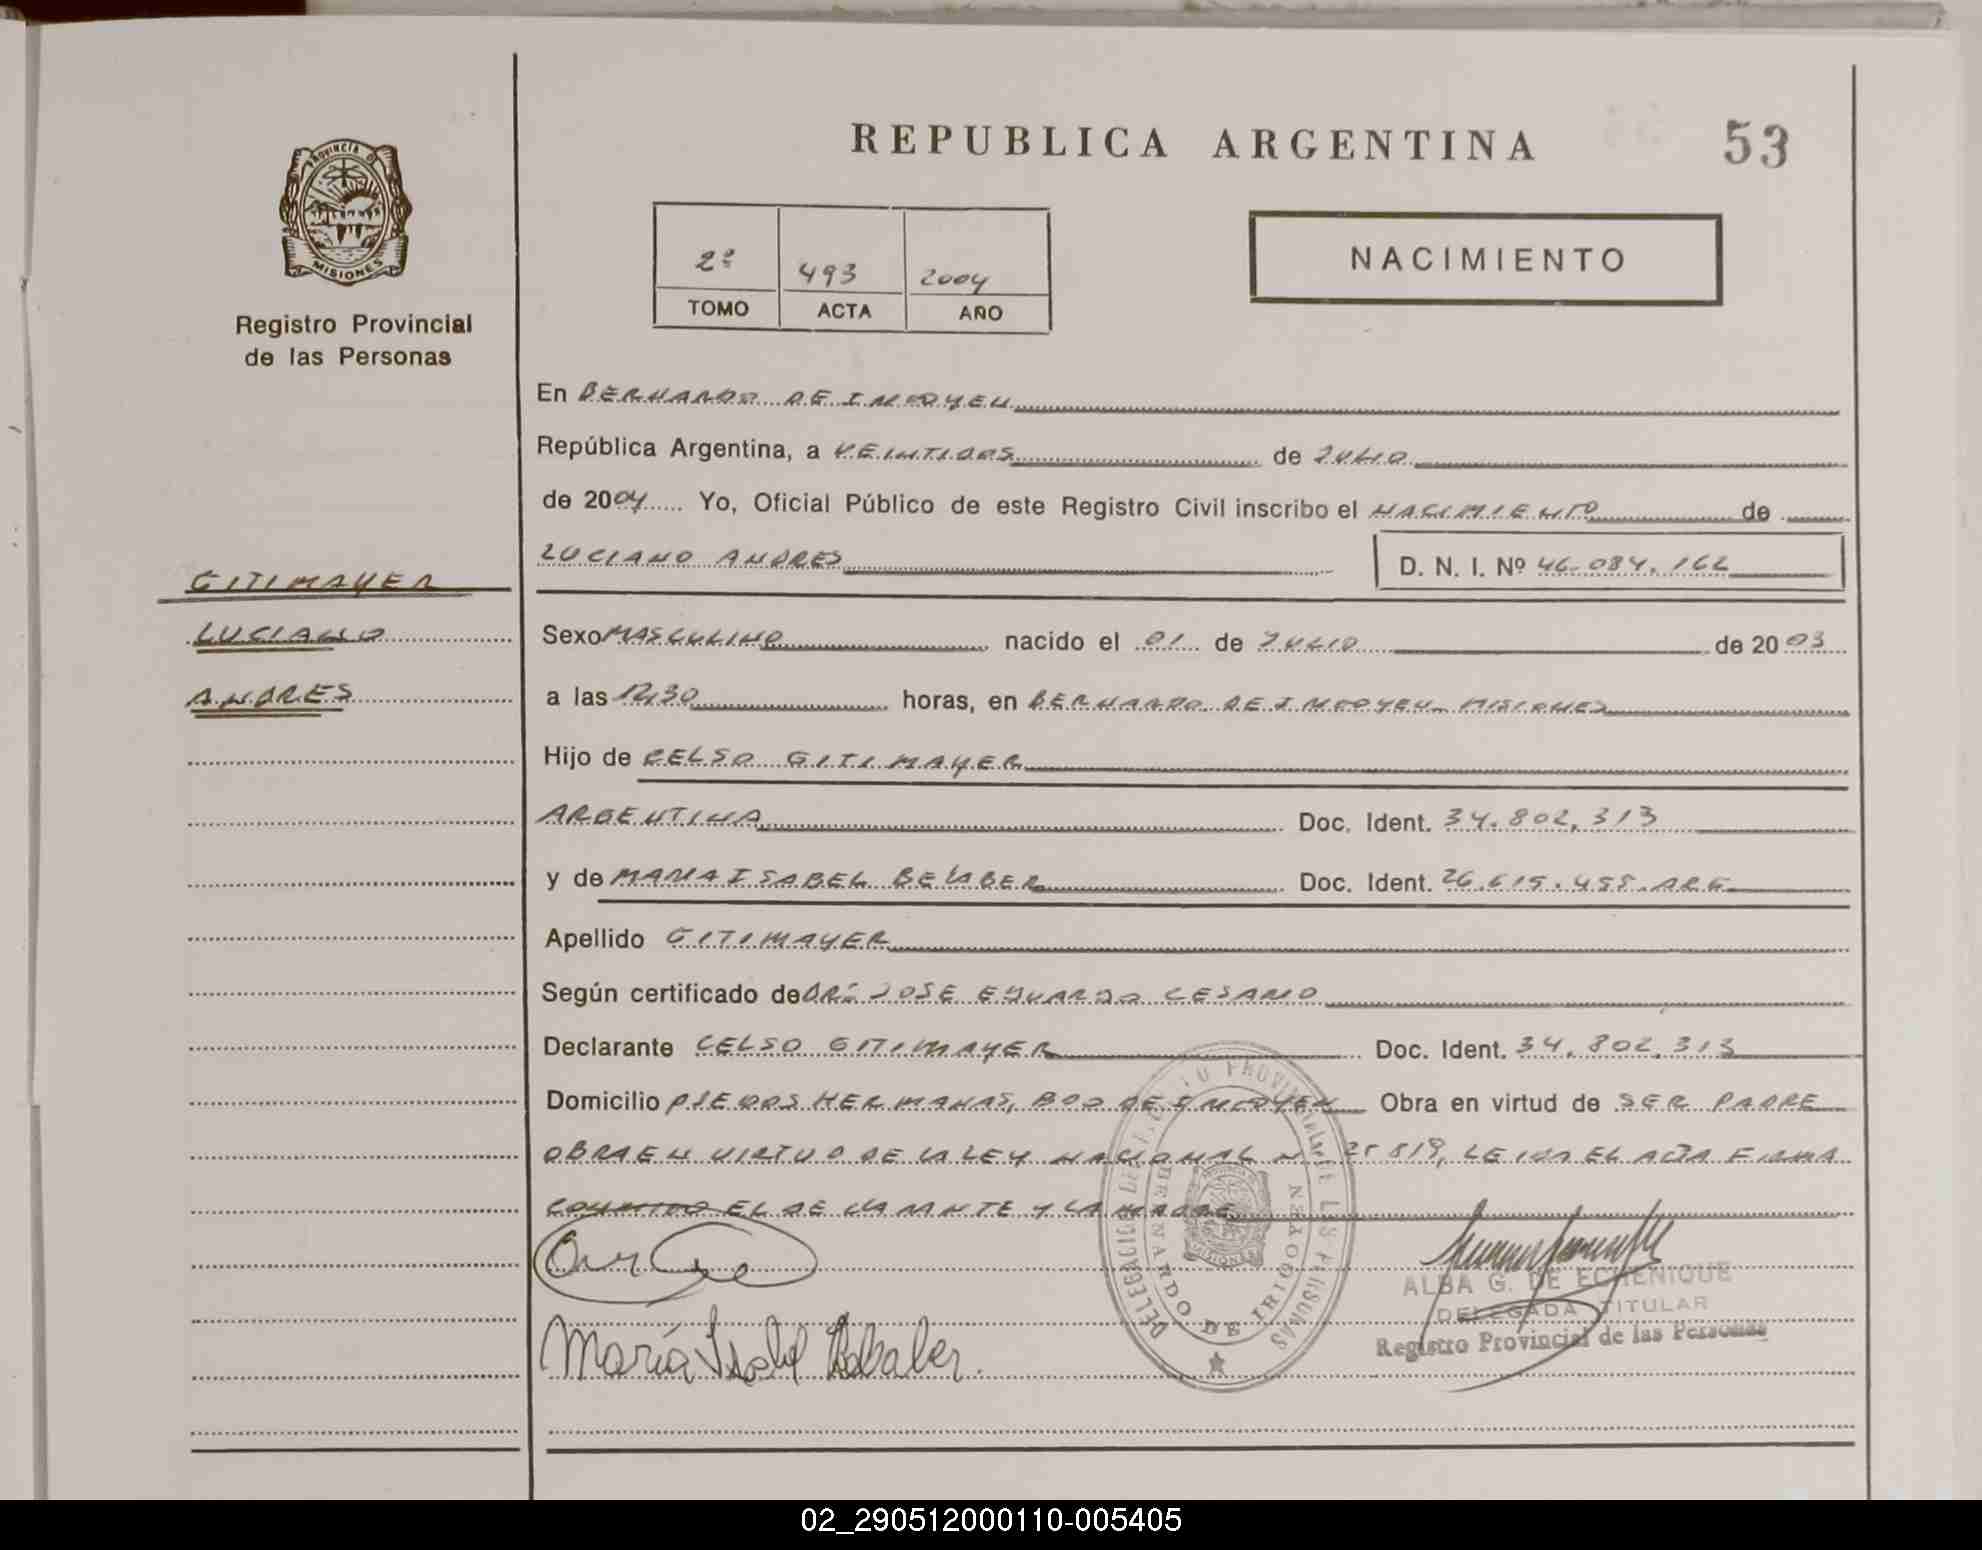 REPUBLICA ARGENTINA
53
PROVINCIA DE
MISIONES
Registro Provincial
de las Personas
2º 493 2004
TOMO ACTA AÑO
NACIMIENTO
En BERNARDO DE IRIGOYEN
República Argentina, a VEINTIDOS de JULIO
de 2004 Yo, Oficial Público de este Registro Civil inscribo el NACIMIENTO de
LUCIANO ANDRES D. N. I. Nº 46.084.162
GITIMAYER
LUCIANO
ANDRES
Sexo MASCULINO nacido el 01 de JULIO de 2003
a las 12,30 horas, en BERNARDO DE IRIGOYEN MISIONES
Hijo de CELSO GITIMAYER
ARGENTINA Doc. Ident. 34.802.313
y de MARIA ISABEL Doc. Ident. 26.615.455. ARG
Apellido GITIMAYER
Según certificado de DR. JOSE EDUARDO CESARIO
Declarante CELSO GITIMAYER Doc. Ident. 34.802.313
Domicilio PJE DOS HERMANAS, BDO DE IRIGOYEN Obra en virtud de SER PADRE
OBRA EN VIRTUD DE LA LEY NACIONAL N 25 819, LEIDA EL ACTA FIRMA
CONMIGO EL DECLARANTE Y LA MADRE
María Isabel
DELEGACION REGISTRO PROVINCIAL DE LAS PERSONAS
BERNARDO DE IRIGOYEN
MISIONES
ALBA G. DE ECHENIQUE
DELEGADA TITULAR
Registro Provincial de las Personas
02_290512000110-005405